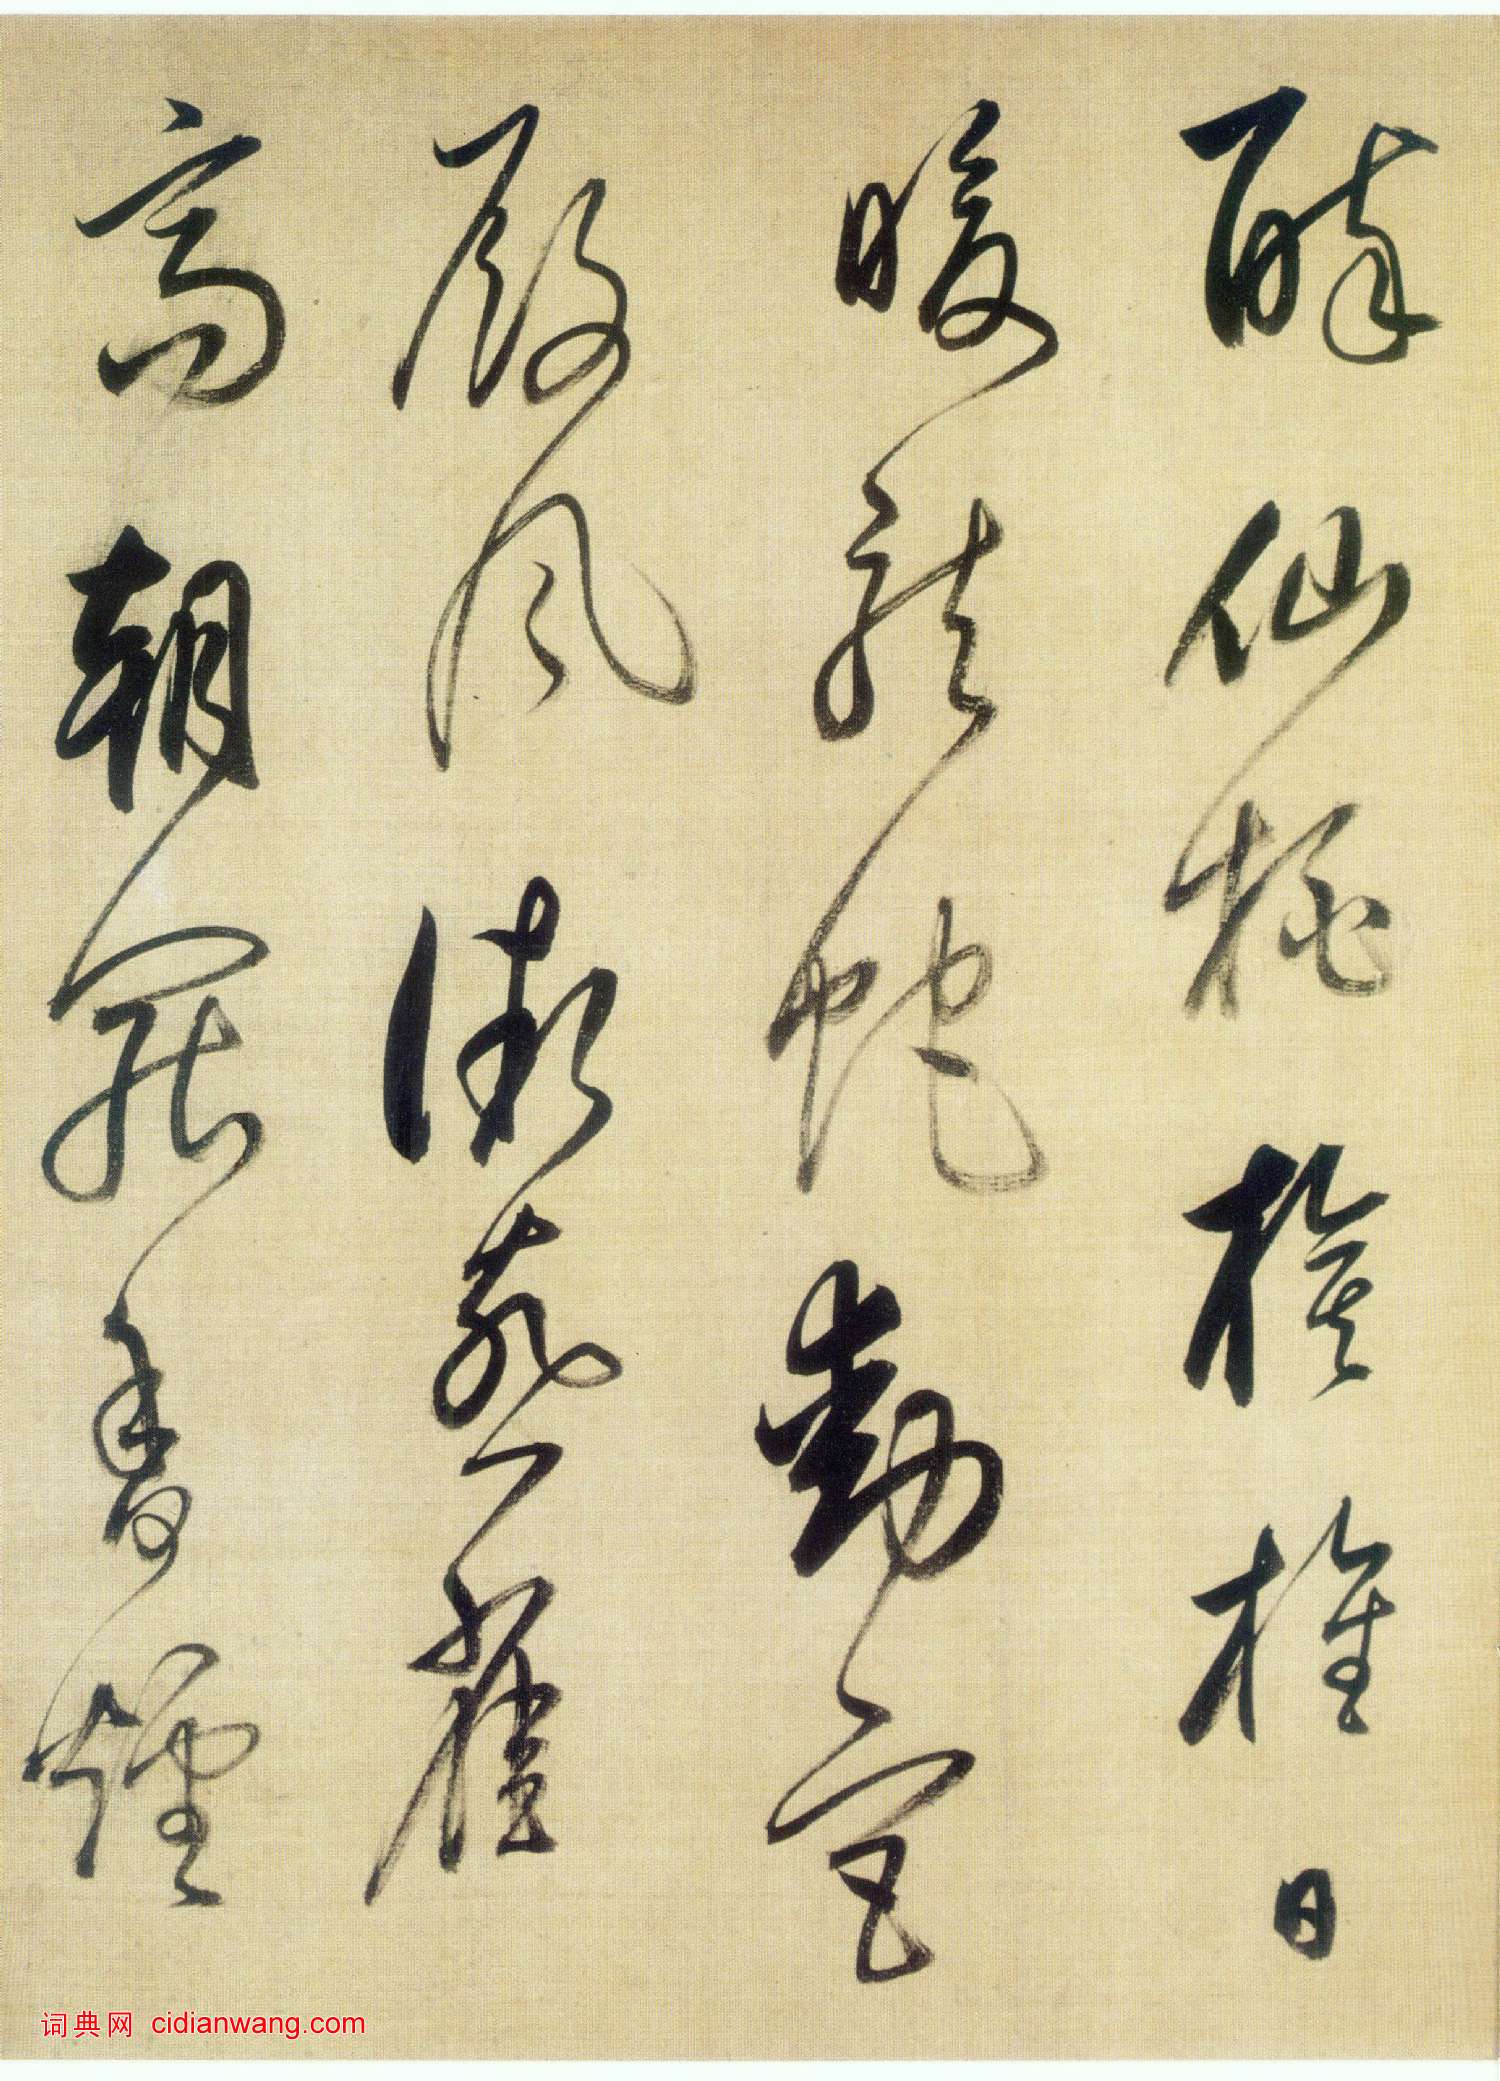 醉仙桃旗旌日
暖龍蛇動宮
殿風微燕雀
高朝罷香煙
词典网 cidianwang.com